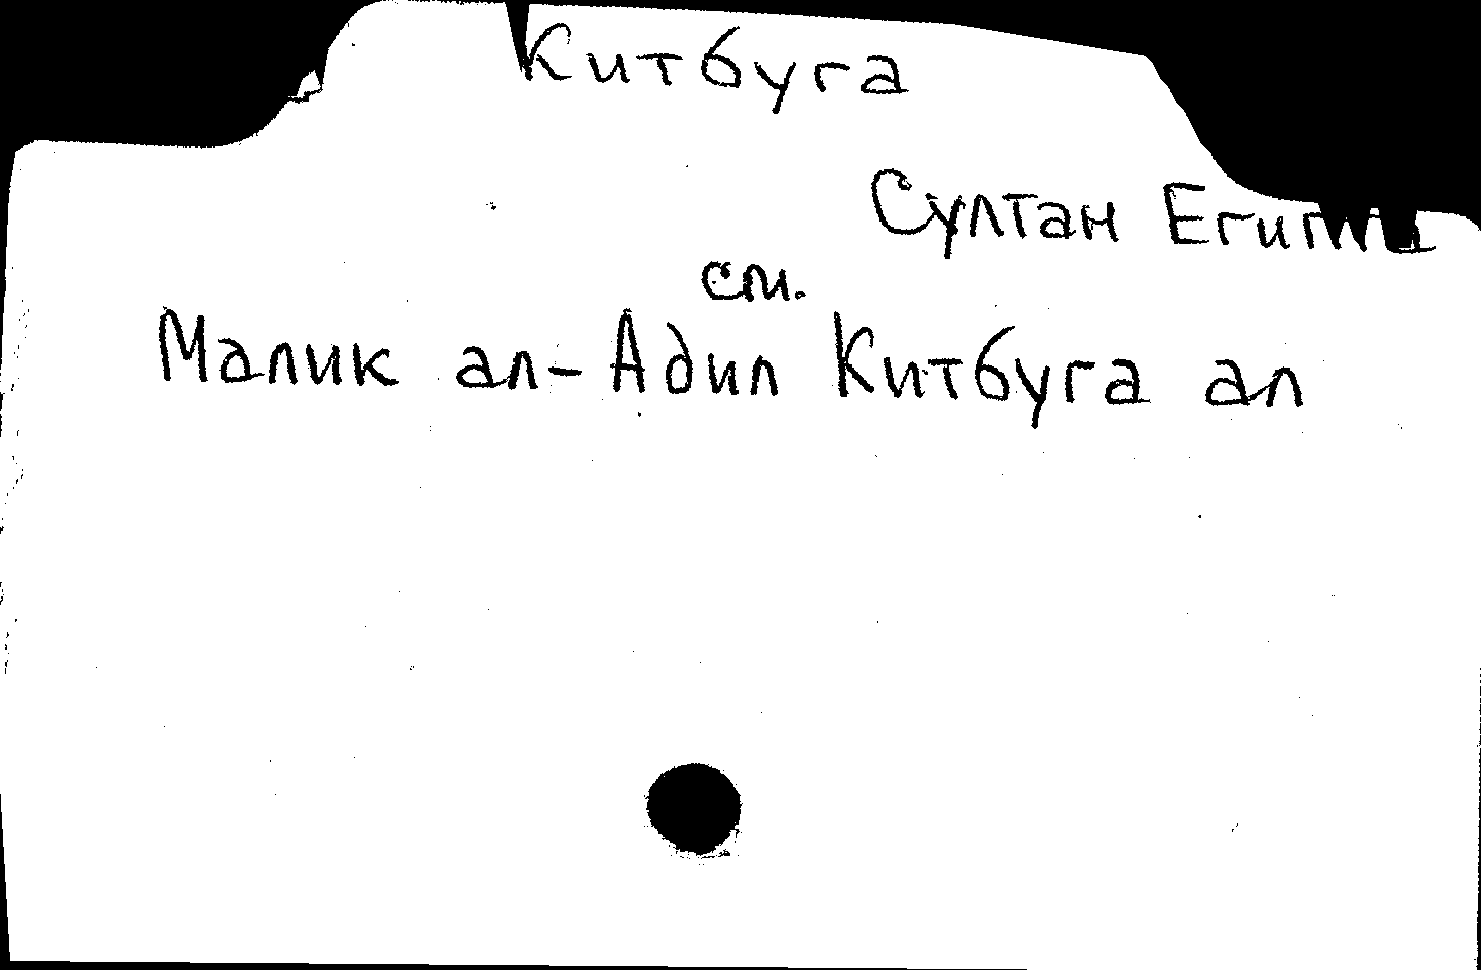 Китбуга
Султан Египта
см.
Малик ал-Адил Китбуга ал